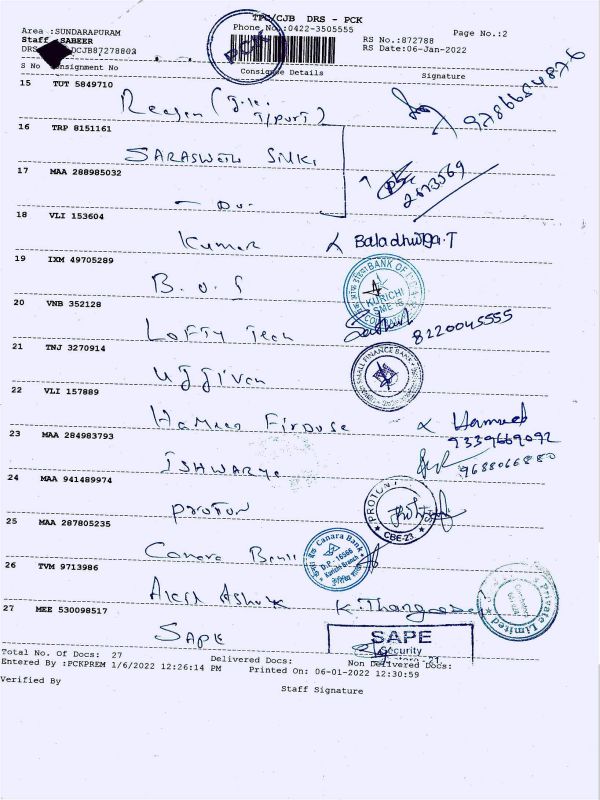 TPC/CJB DRS - PCK
Area :SUNDARAPURAM
Phone No:0422-3505555
Page No.:2
Staff :SABEER
RS No.:872788
DRS
DCJB87278802
RS Date:06-Jan-2022
PCK
S No Consignment No
Consignee Details
Signature
15 TUT 5849710
9786654876
16 TRP 8151161
SARASWATHI SILKS
17 MAA 288985032
2673569
- Do -
18 VLI 153604
Kumar
Baladhuvga.T
19 IXM 49705289
B.O.I
BANK OF
KURICHI
SME IS
20 VNB 352128
Lofty Tech
8220045555
21 TNJ 3270914
Ujjivan
SMALL FINANCE BANK
22 VLI 157889
Hameed Firduse
Hameed
9339669092
23 MAA 284983793
ISHWARYA
9688066880
24 MAA 941489974
PROTON
PROTON
CBE-21
25 MAA 287805235
Canara Bank
Canara Bank
D.P. 16566
Kurichi Branch
26 TVM 9713986
Akash Ashok
K. Thangavel
Private Limited
27 MEE 530098517
SAPE
SAPE
Security
Total No. Of Docs: 27
Delivered Docs:
Non Delivered Docs:
Entered By :PCKPREM 1/6/2022 12:26:14 PM
Printed On: 06-01-2022 12:30:59
Verified By
Staff Signature